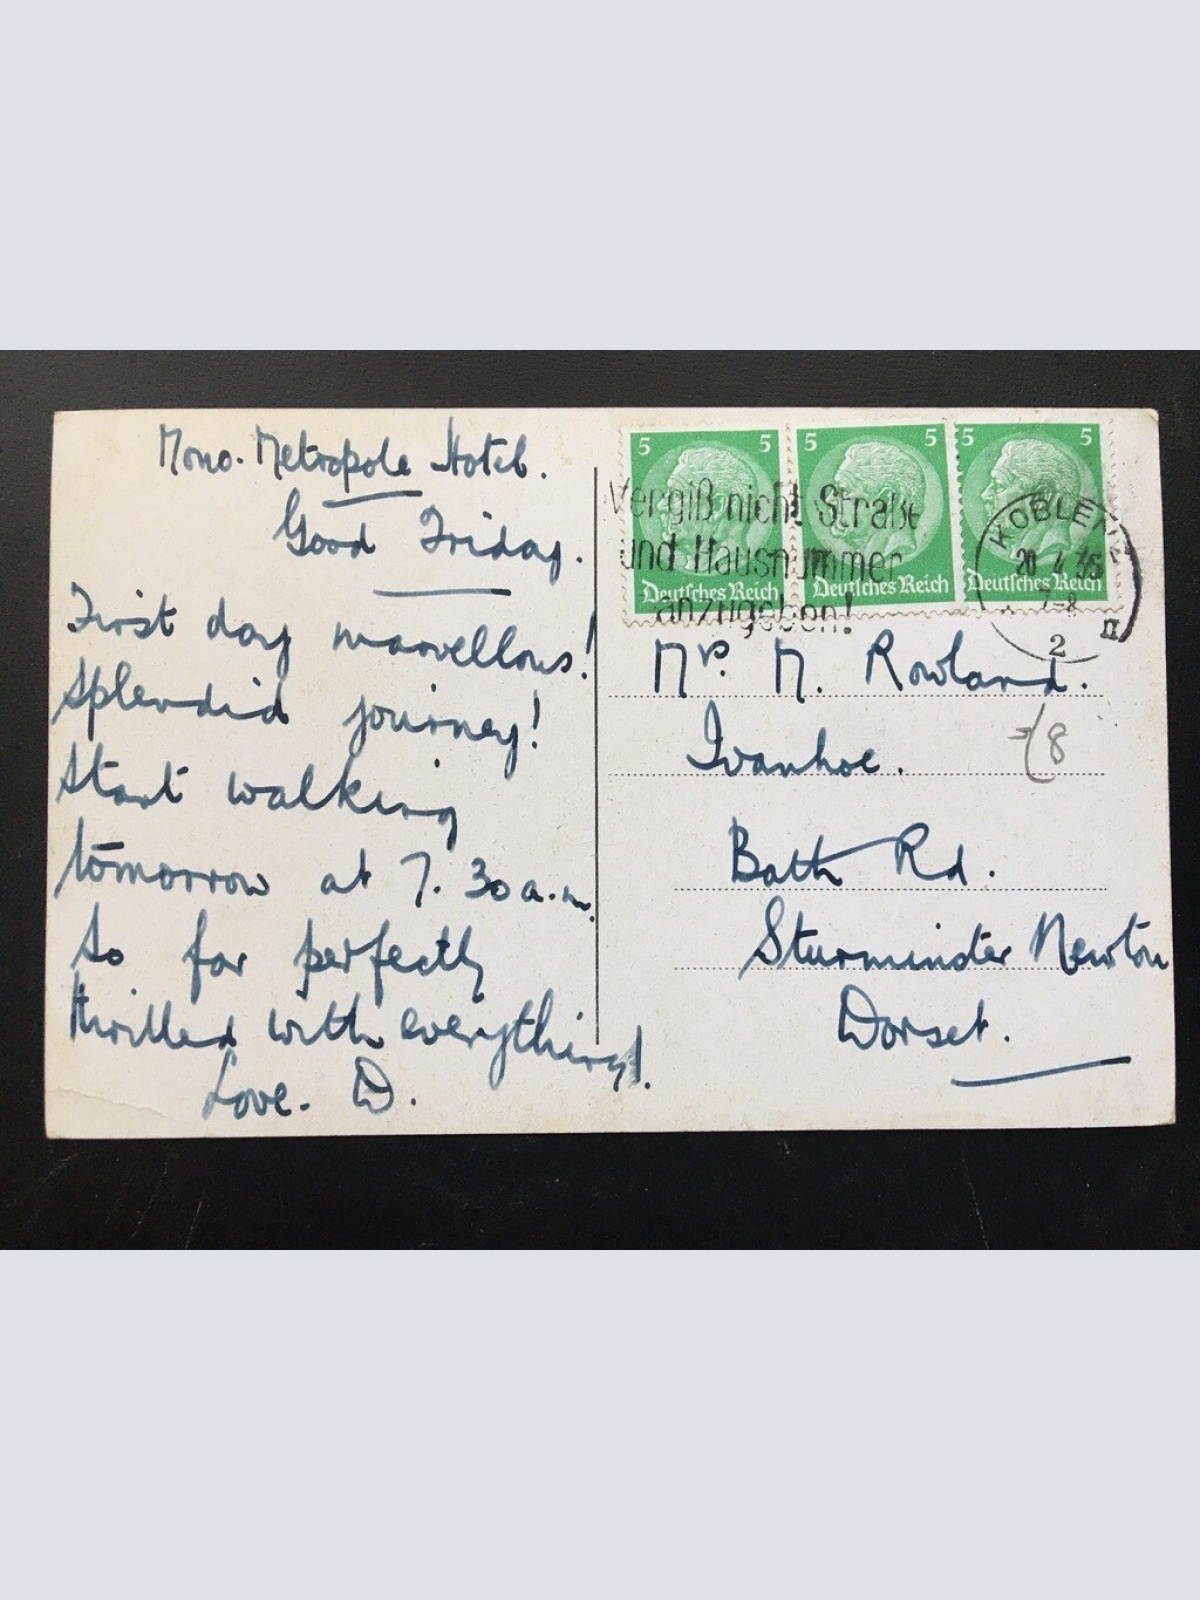 Mono. Metropole Hotel.
Good Friday.
First day marvellous!
Splendid journey!
Start walking
tomorrow at 7.30 a.m.
So far perfectly
thrilled with everything!
Love. D.
5 5 5 5 5 5
Vergiß nicht Straße
und Hausnummer
anzugeben!
Deutsches Reich Deutsches Reich Deutsches Reich
KOBLENZ
20 4 35
7-8
II
2
Mrs. M. Rowland.
Ivanhoe.
8
Bath Rd.
Sturminster Newton
Dorset.